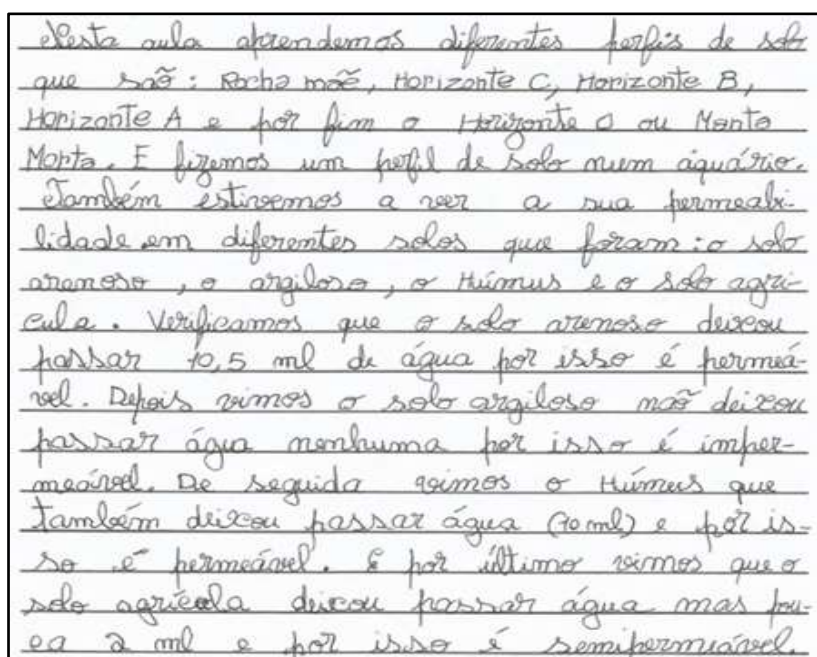 Nesta aula aprendemos diferentes perfis de solo
que são: Rocha mãe, Horizonte C, Horizonte B,
Horizonte A e por fim o Horizonte O ou Manta
Morta. E fizemos um perfil de solo num áquário.
Também estivemos a veer a sua permeabi-
lidade em diferentes solos que foram: o solo
arenoso, o argiloso, o Húmus e o solo agri-
cula. Verificamos que o solo arenoso deixou
passar 10,5 ml de água por isso é permeá-
vel. Depois vimos o solo argiloso não deixou
passar água nenhuma por isso é imper-
meável. De seguida vimos o Húmus que
também deixou passar água (10 ml) e por is-
so é permeável. E por último vimos que o
solo agrícola deixou passar água mas pou-
ca 2 ml e por isso é semipermeável.